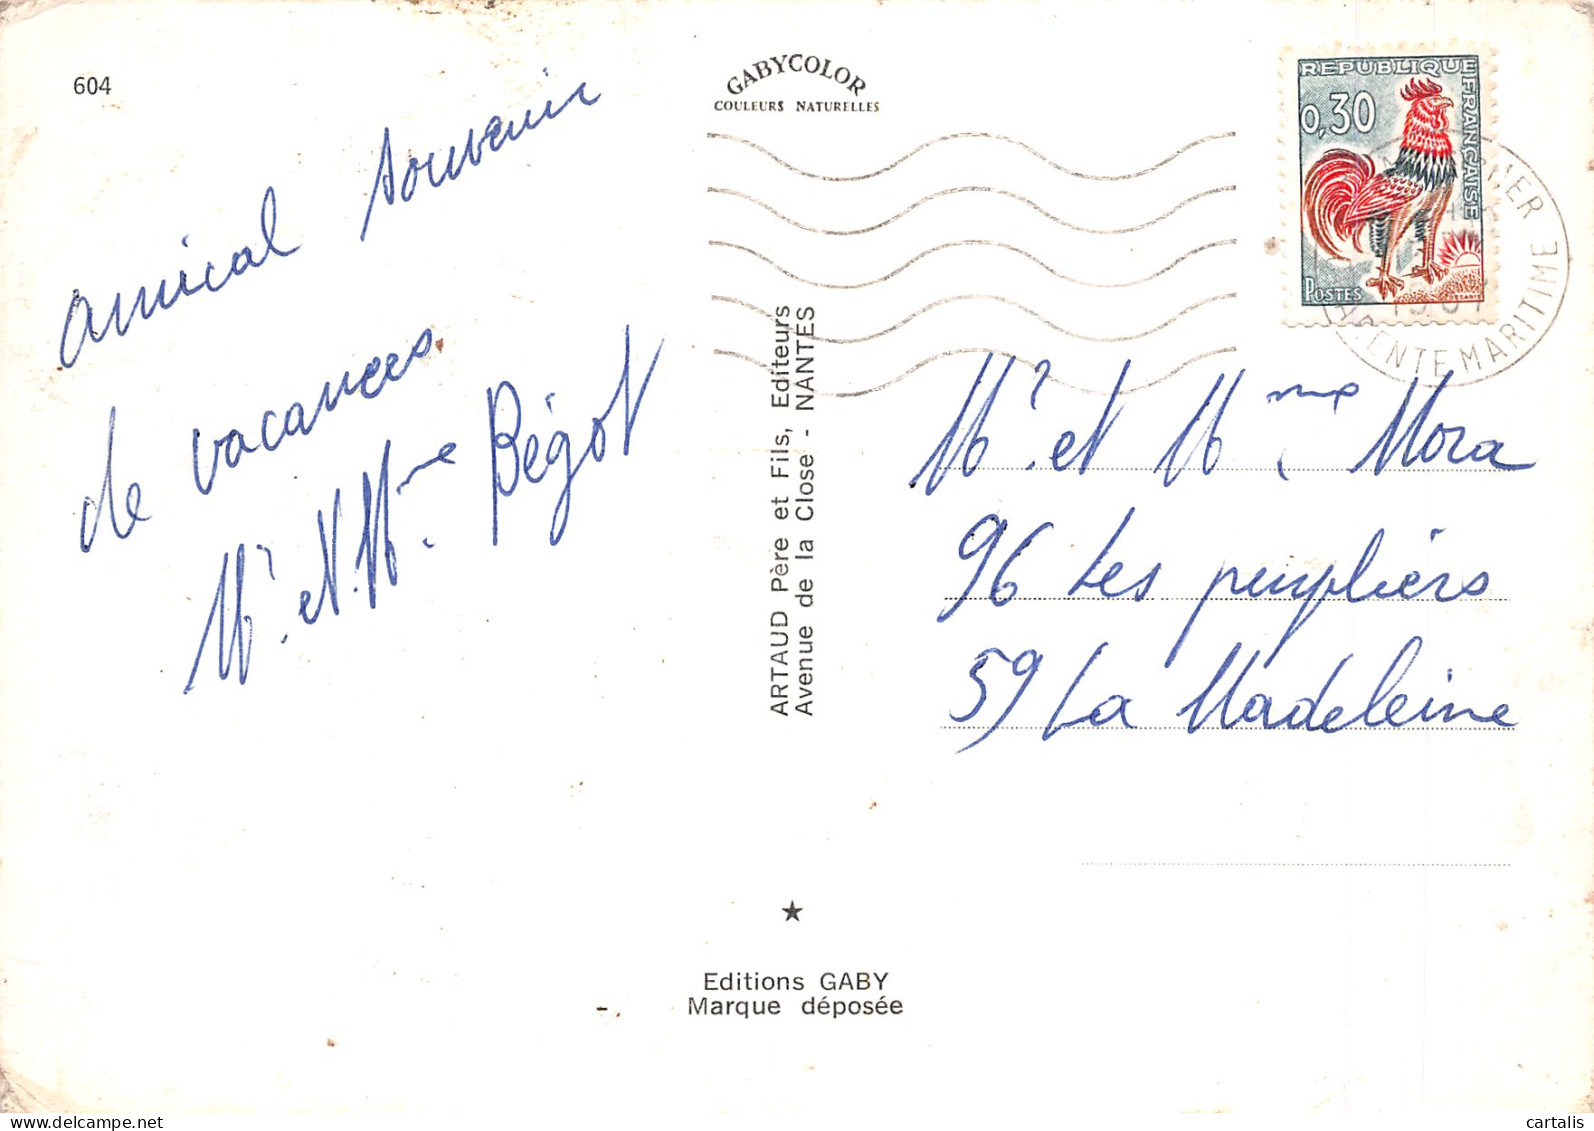 604
amical souvenir
de vacances.
Mr. et Mme. Bégot
GABYCOLOR
COULEURS NATURELLES
ARTAUD Père et Fils, Editeurs
Avenue de la Close - NANTES
REPUBLIQUE FRANÇAISE
0,30
POSTES
MER
CHARENTE MARITIME
Mr. et Mme. Mora
96 Les peupliers
59 La Madeleine
★
Editions GABY
Marque déposée
cartalis
https://www.delcampe.net